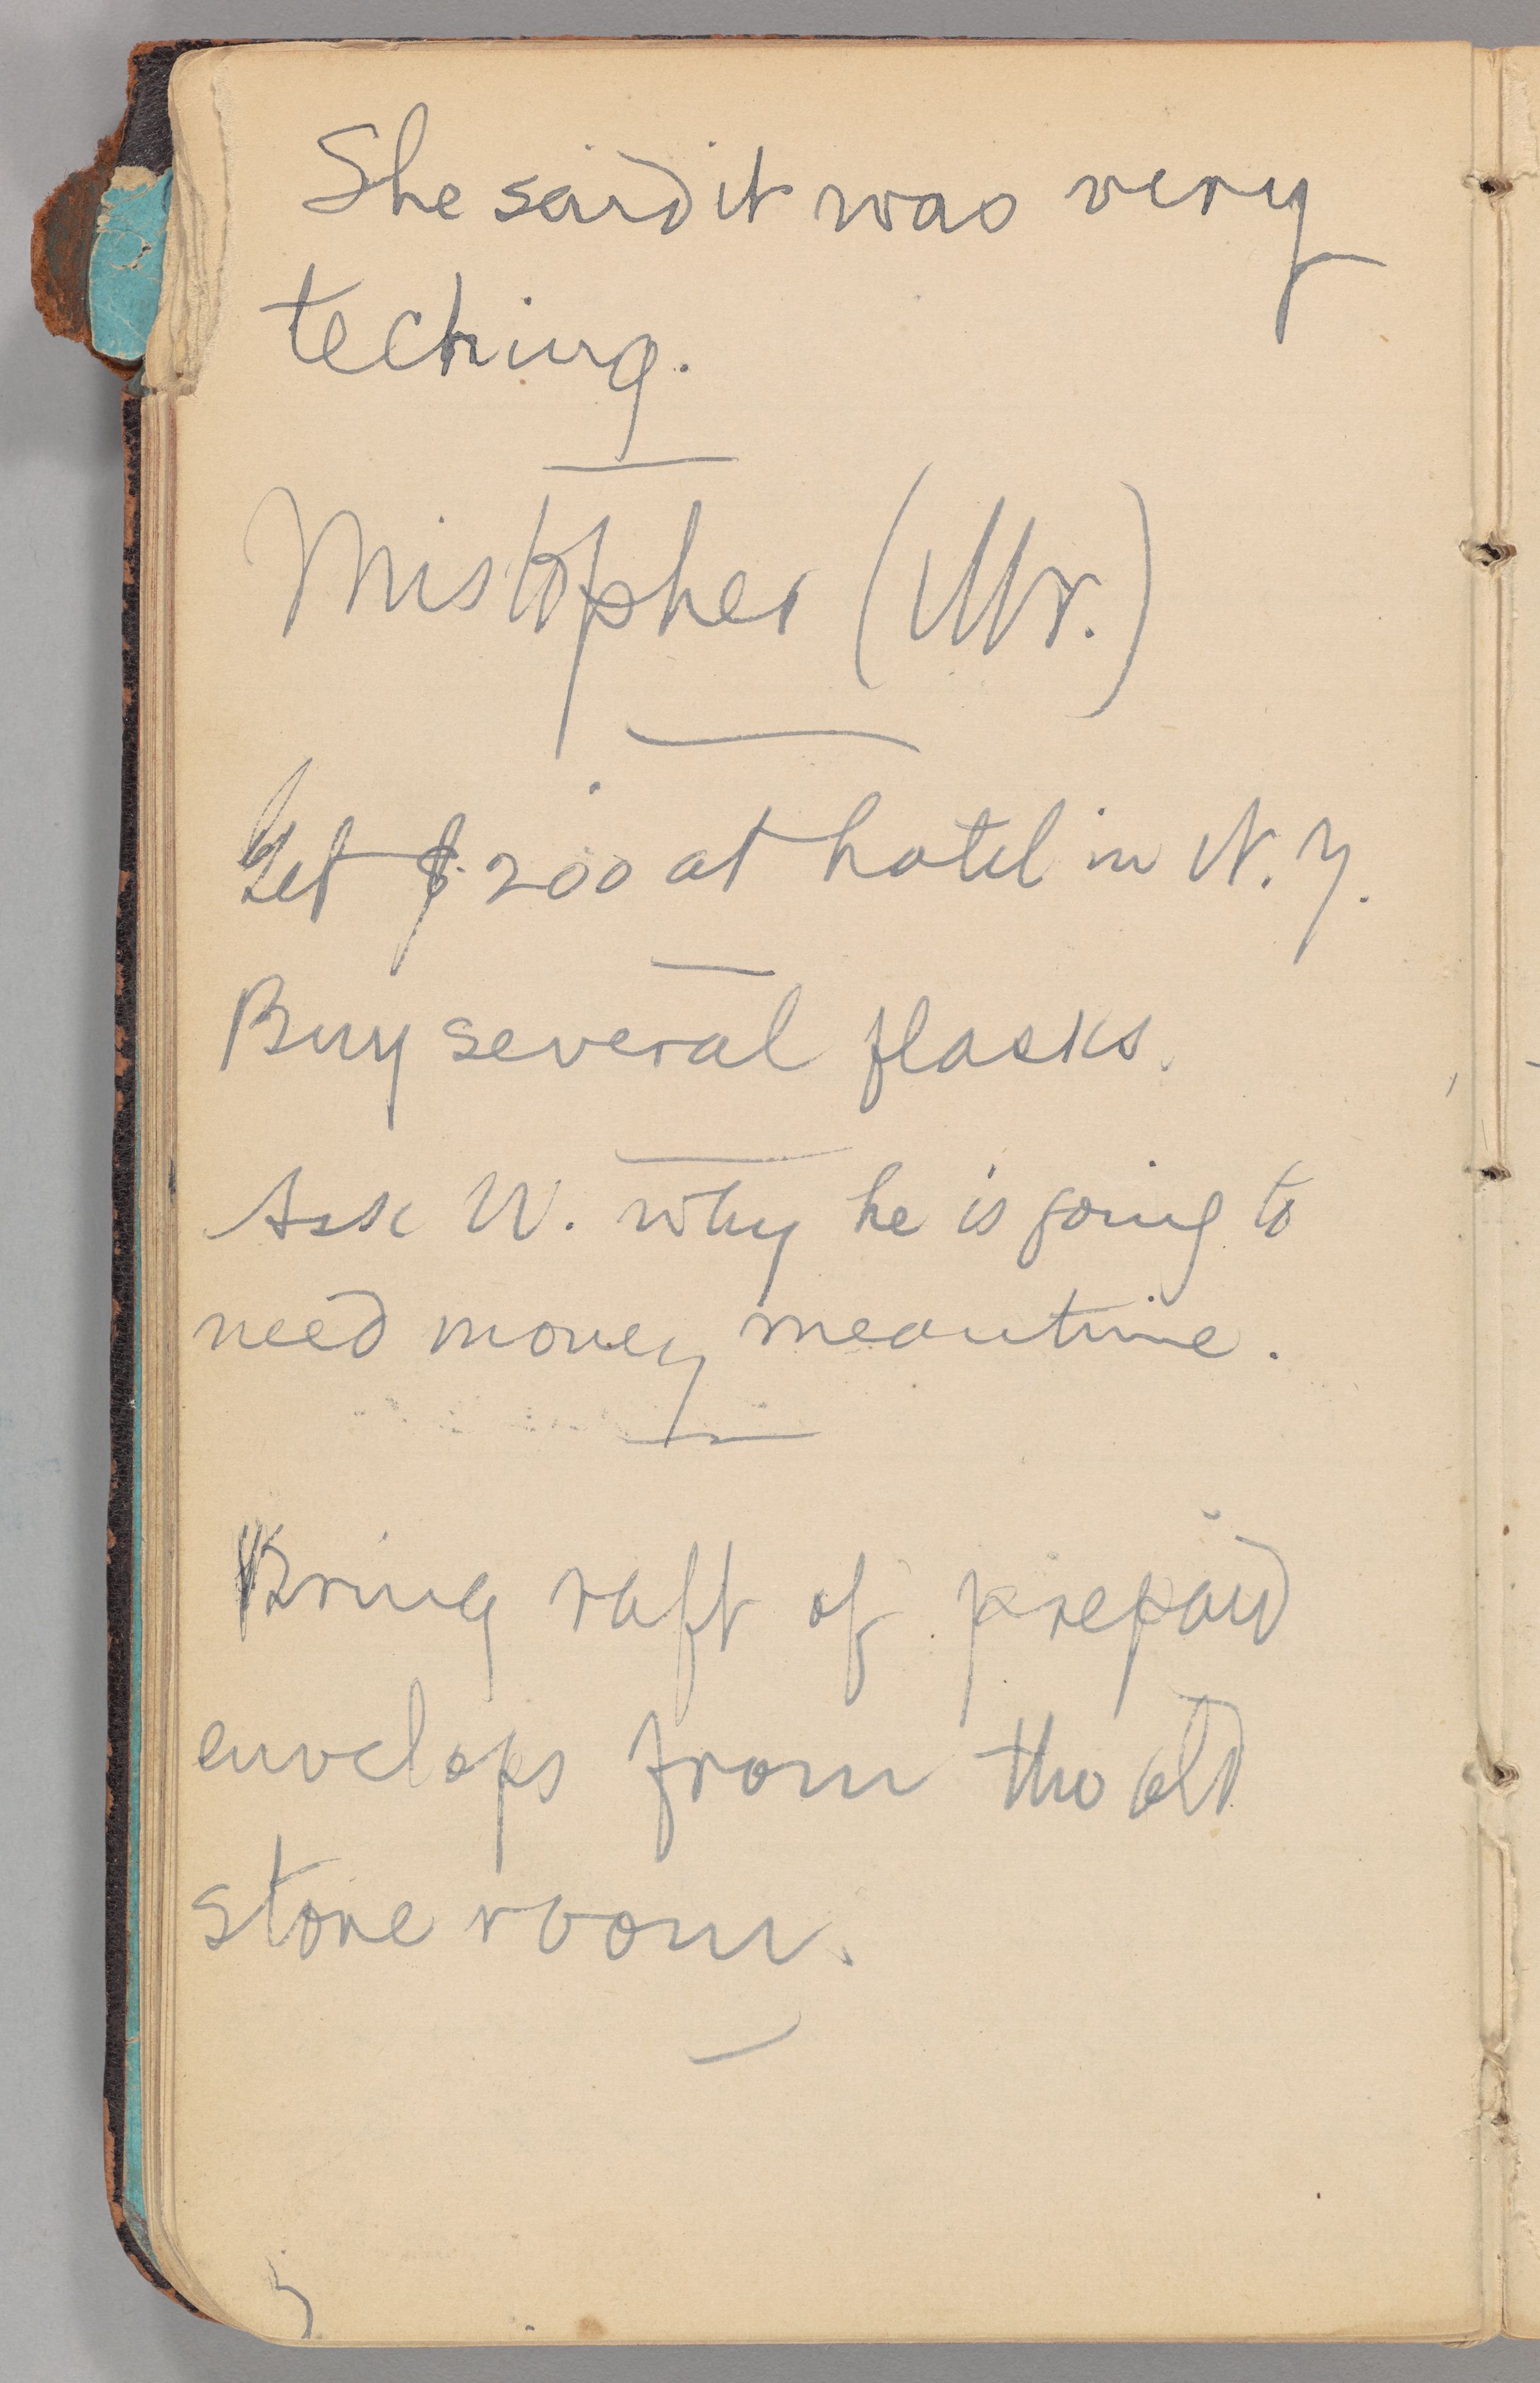 She said it was very
teching.
Mistopher (Mr.)
Get $200 at hotel in N.Y.
Buy several flasks.
Ask W. why he is going to
need money meantime.
Bring raft of prepaid
envelops from the old
store room.